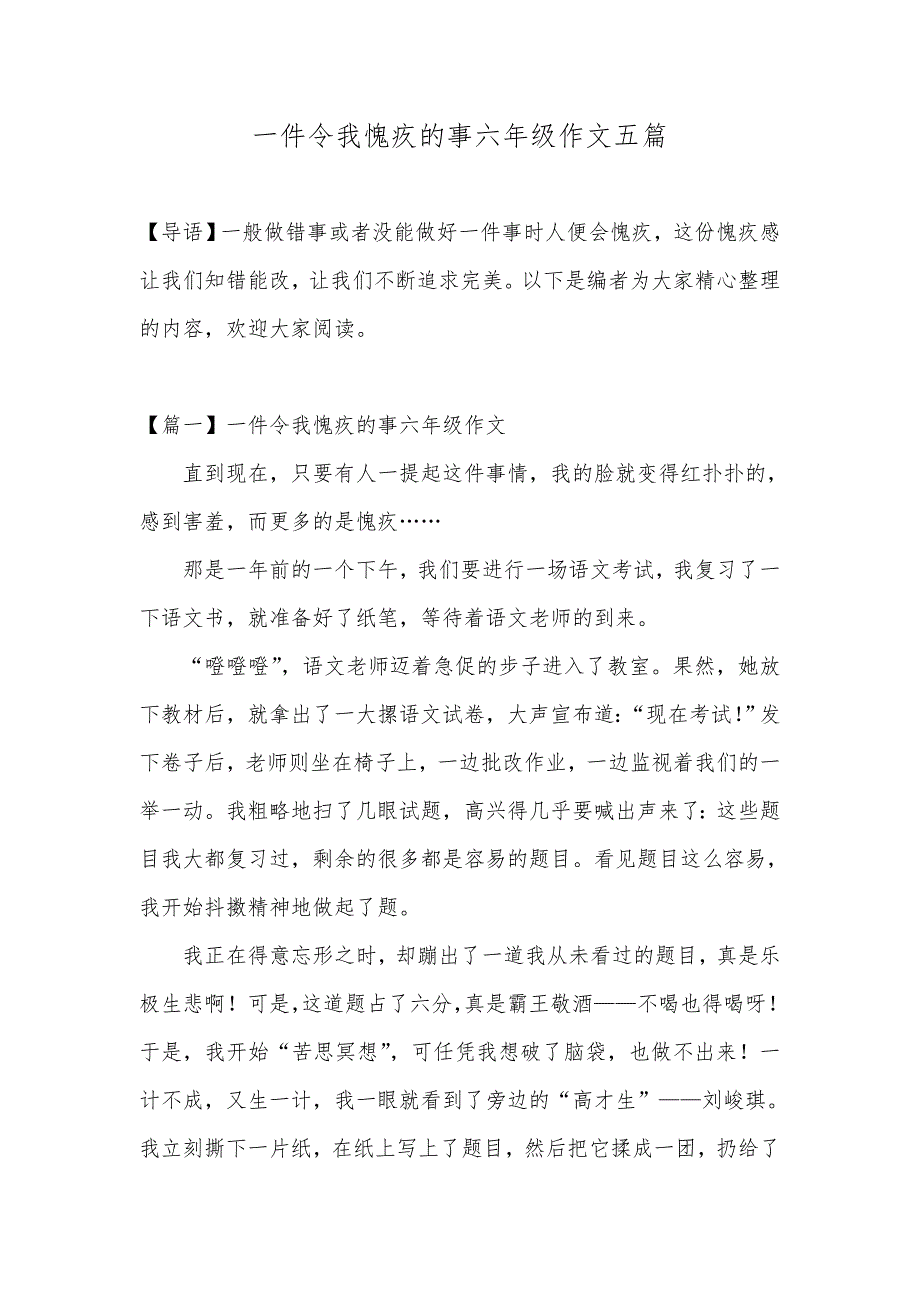 一件令我愧疚的事六年级作文五篇
【导语】一般做错事或者没能做好一件事时人便会愧疚，这份愧疚感
让我们知错能改，让我们不断追求完美。以下是编者为大家精心整理
的内容，欢迎大家阅读。
【篇一】一件令我愧疚的事六年级作文
直到现在，只要有人一提起这件事情，我的脸就变得红扑扑的，
感到害羞，而更多的是愧疚……
那是一年前的一个下午，我们要进行一场语文考试，我复习了一
下语文书，就准备好了纸笔，等待着语文老师的到来。
“噔噔噔”，语文老师迈着急促的步子进入了教室。果然，她放
下教材后，就拿出了一大摞语文试卷，大声宣布道：“现在考试！”发
下卷子后，老师则坐在椅子上，一边批改作业，一边监视着我们的一
举一动。我粗略地扫了几眼试题，高兴得几乎要喊出声来了：这些题
目我大都复习过，剩余的很多都是容易的题目。看见题目这么容易，
我开始抖擞精神地做起了题。
我正在得意忘形之时，却蹦出了一道我从未看过的题目，真是乐
极生悲啊！可是，这道题占了六分，真是霸王敬酒——不喝也得喝呀！
于是，我开始“苦思冥想”，可任凭我想破了脑袋，也做不出来！一
计不成，又生一计，我一眼就看到了旁边的“高才生”——刘峻琪。
我立刻撕下一片纸，在纸上写上了题目，然后把它揉成一团，扔给了